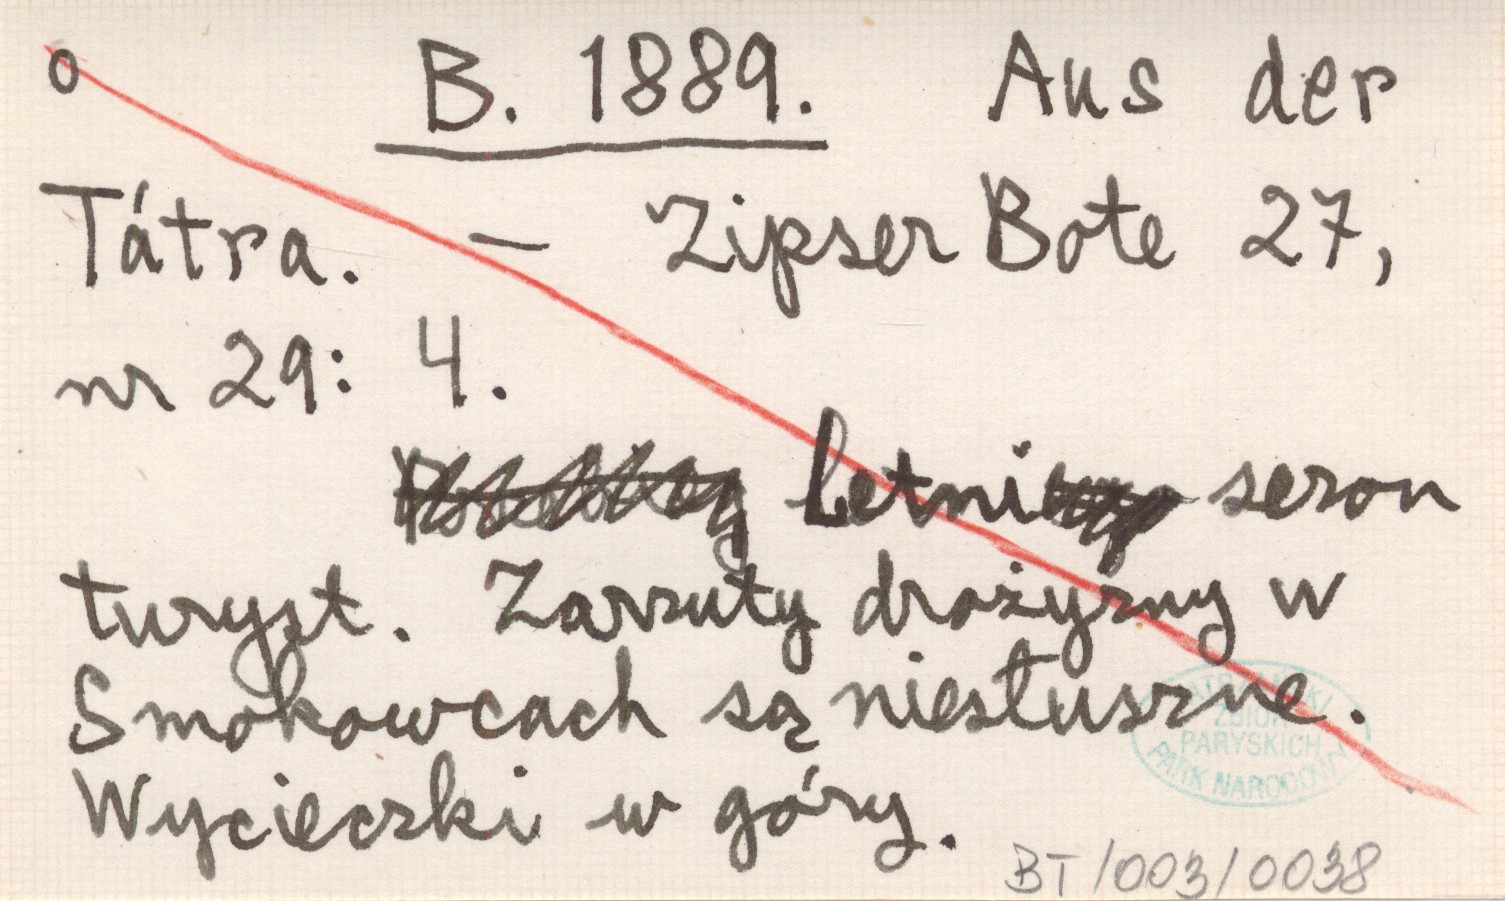 o B. 1889. Aus der
Tátra. — Zipser Bote 27,
nr 29: 4.
Letni sezon
turyst. Zarzuty drożyzny w
Smokowcach są niesłuszne.
Wycieczki w góry.
TATRZAŃSKI
ZBIORY
PARYSKICH
PARK NARODOWY
BT/003/0038